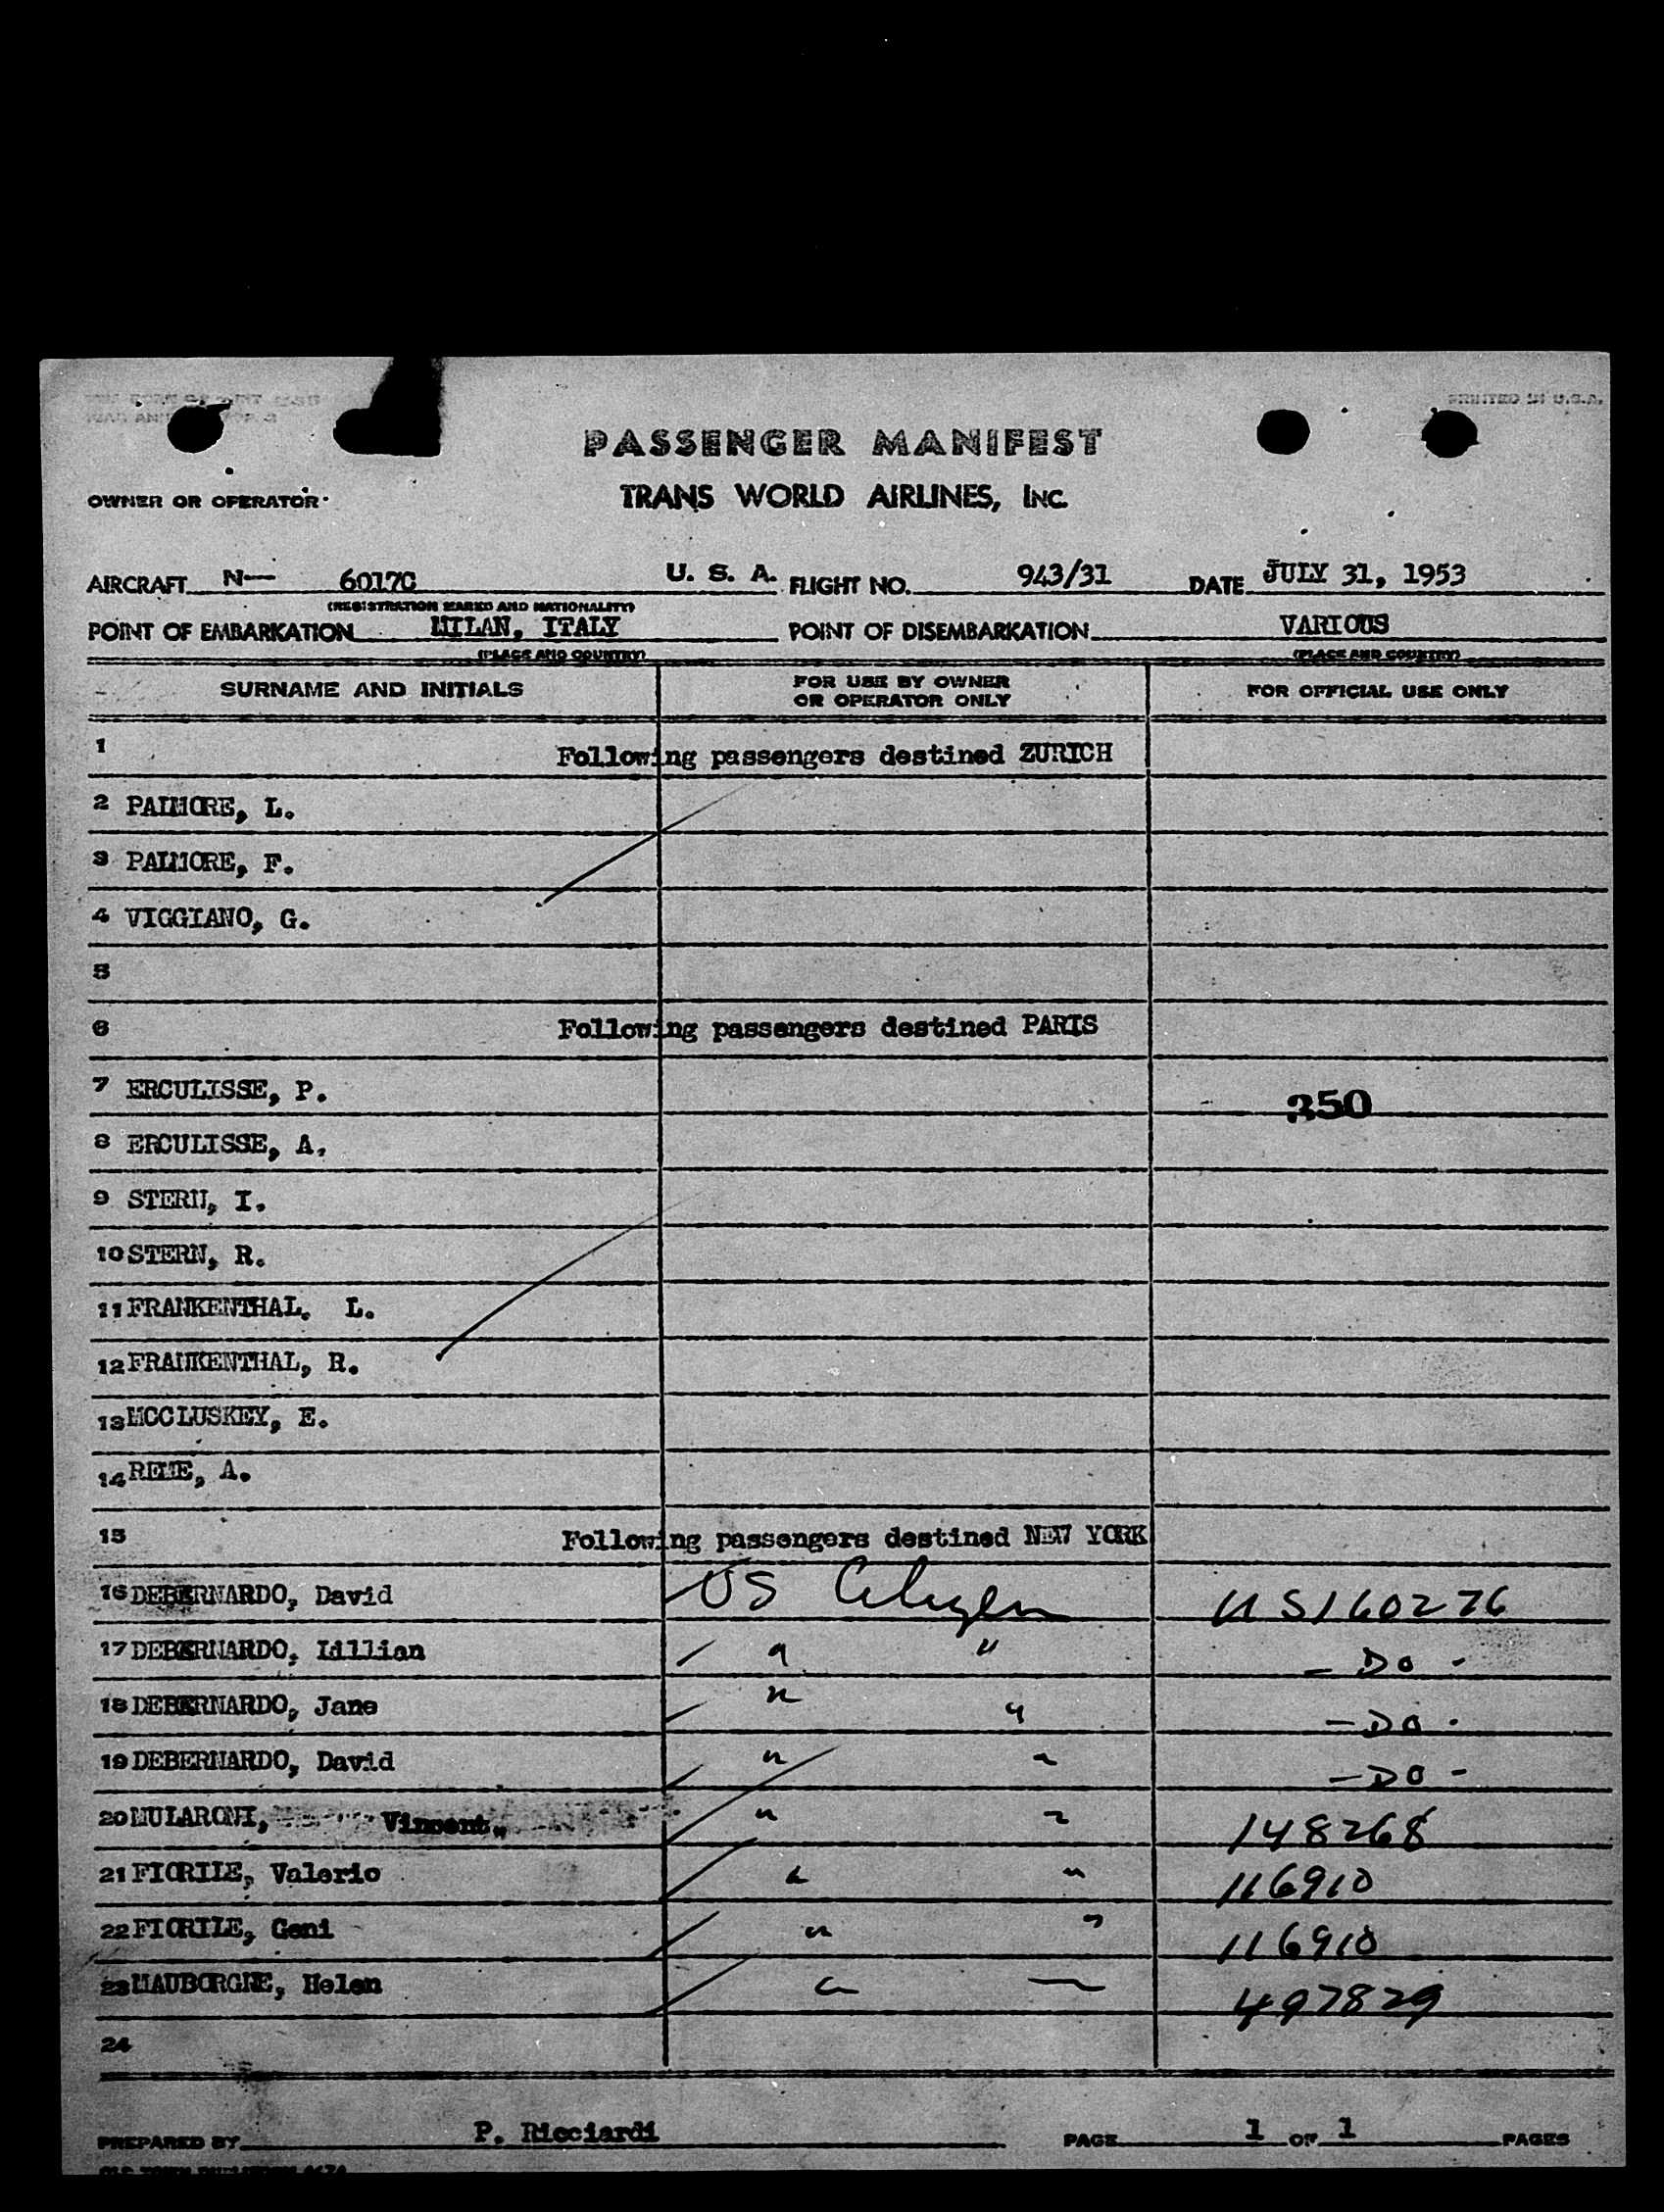 PRINTED IN U.S.A.
PASSENGER MANIFEST
OWNER OR OPERATOR TRANS WORLD AIRLINES, INC.
AIRCRAFT N— 6017C U. S. A. FLIGHT NO. 943/31 DATE JULY 31, 1953
(REGISTRATION MARKS AND NATIONALITY)
POINT OF EMBARKATION MILAN, ITALY POINT OF DISEMBARKATION VARIOUS
(PLACE AND COUNTRY) (PLACE AND COUNTRY)
SURNAME AND INITIALS FOR USE BY OWNER OR OPERATOR ONLY FOR OFFICIAL USE ONLY
1 Following passengers destined ZURICH
2 PALMORE, L.
3 PALMORE, F.
4 VIGGIANO, G.
5
6 Following passengers destined PARIS
7 ERCULISSE, P. 350
8 ERCULISSE, A.
9 STERN, I.
10 STERN, R.
11 FRANKENTHAL, L.
12 FRANKENTHAL, R.
13 MCCLUSKEY, E.
14 REME, A.
15 Following passengers destined NEW YORK
16 DEBERNARDO, David US Citizen US160276
17 DEBERNARDO, Lillian " " - DO -
18 DEBERNARDO, Jane " " - DO -
19 DEBERNARDO, David " " - DO -
20 MULARONI, Vincent " " 148268
21 FIORILE, Valerio " " 116910
22 FIORILE, Geni " " 116910
23 MAUBORGNE, Helen " " 497829
24
PREPARED BY P. Ricciardi PAGE 1 OF 1 PAGES